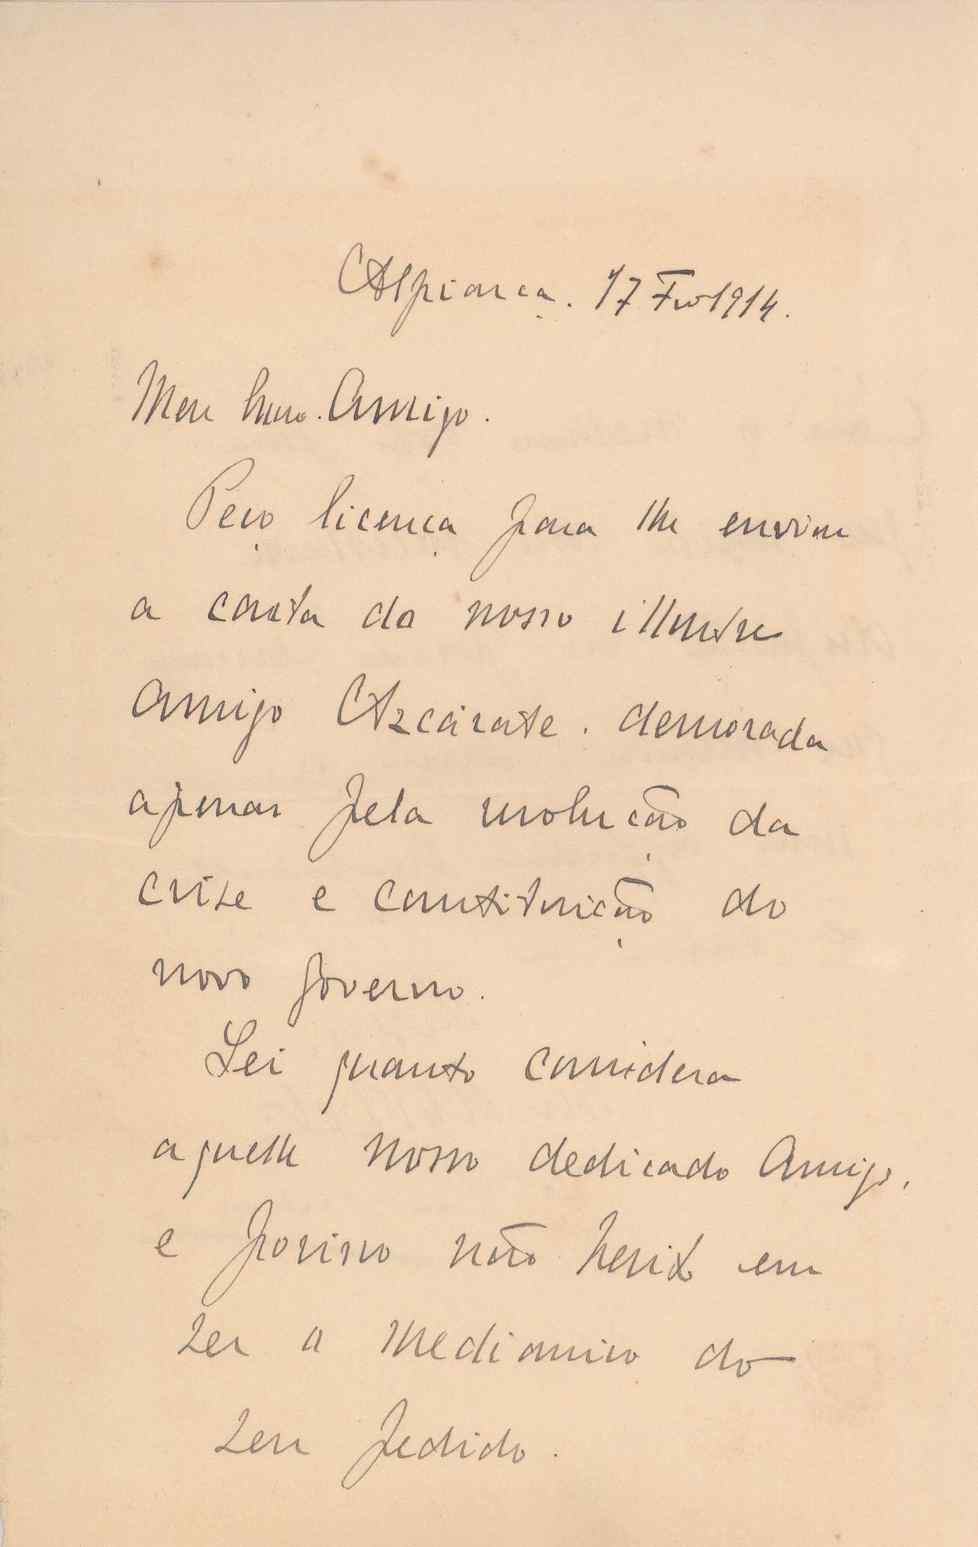 Alpiarça. 17 Fevro 1914.
Meu Amigo.
Peço licença para lhe enviar
a carta do nosso illustre
Amigo Azcárate. demorada
apenas pela resolução da
crise e constituição do
novo governo.
Sei quanto considera
aquelle nosso dedicado Amigo,
e por isso não hesito em
ser o medianeiro do
seu pedido.